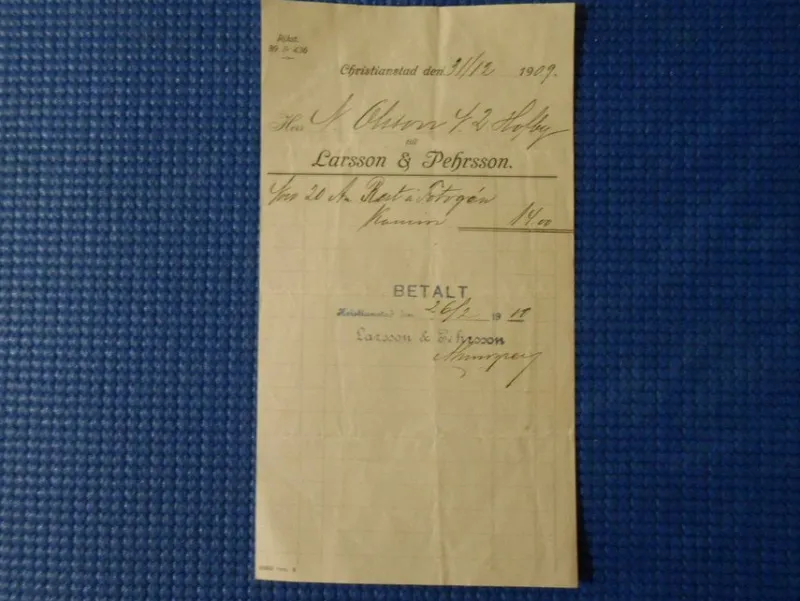 Christianstad den 31/12 1909.
Herr N Olsson 42 Hofby
till
Larsson & Pehrsson.
20 Rest á Fotogén
Kamin 14 00
BETALT
Kristianstad den 26/2 19 10
Larsson & Pehrsson